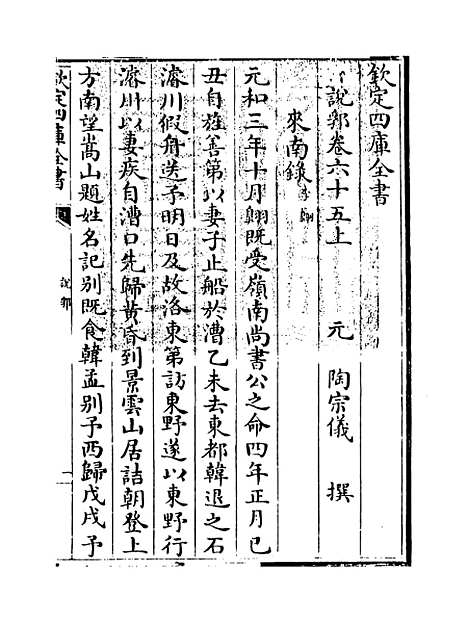 欽定四庫全書
說郛卷六十五上
元 陶宗儀 撰
來南錄 李翺
元和三年十月翺既受嶺南尚書公之命四年正月己
丑自旌善第以妻子止船於漕乙未去東都韓退之石
濬川假舟送予明日及故洛東第訪東野遂以東野行
濬川以妻疾自漕口先歸黄昏到景雲山居詰朝登上
方南望嵩山題姓名記别既食韓孟别予西歸戊戌予
欽定四庫全書
說郛
一